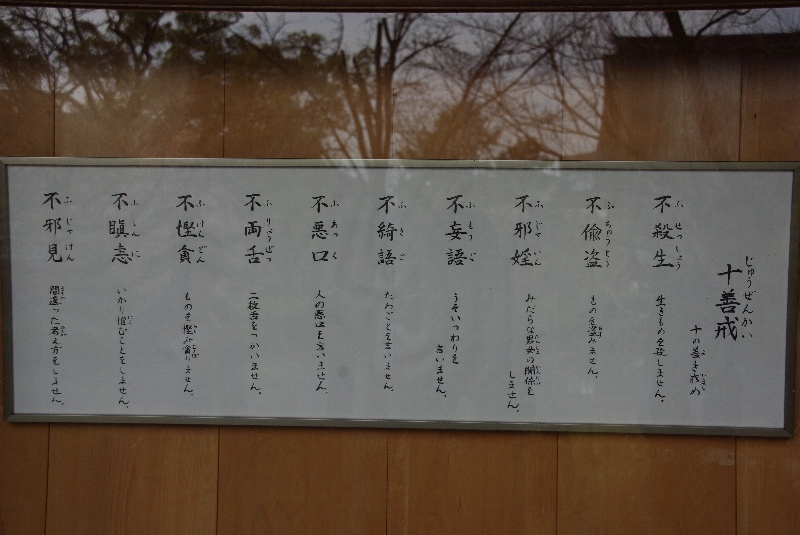 じゅうぜんかい
十善戒
十の善き戒め
ふせっしょう
不殺生
生きものを殺しません。
ふちゅうとう
不偸盗
ものを盗みません。
ふじゃいん
不邪婬
みだらな男女の関係を
しません。
ふもうご
不妄語
うそいつわりを
言いません。
ふきご
不綺語
たわごとを言いません。
ふあっく
不悪口
人の悪口を言いません。
ふりょうぜつ
不両舌
二枚舌をつかいません。
ふけんどん
不慳貪
ものを慳み貪りません。
ふしんに
不瞋恚
いかり恨むことをしません。
ふじゃけん
不邪見
間違った考え方をしません。